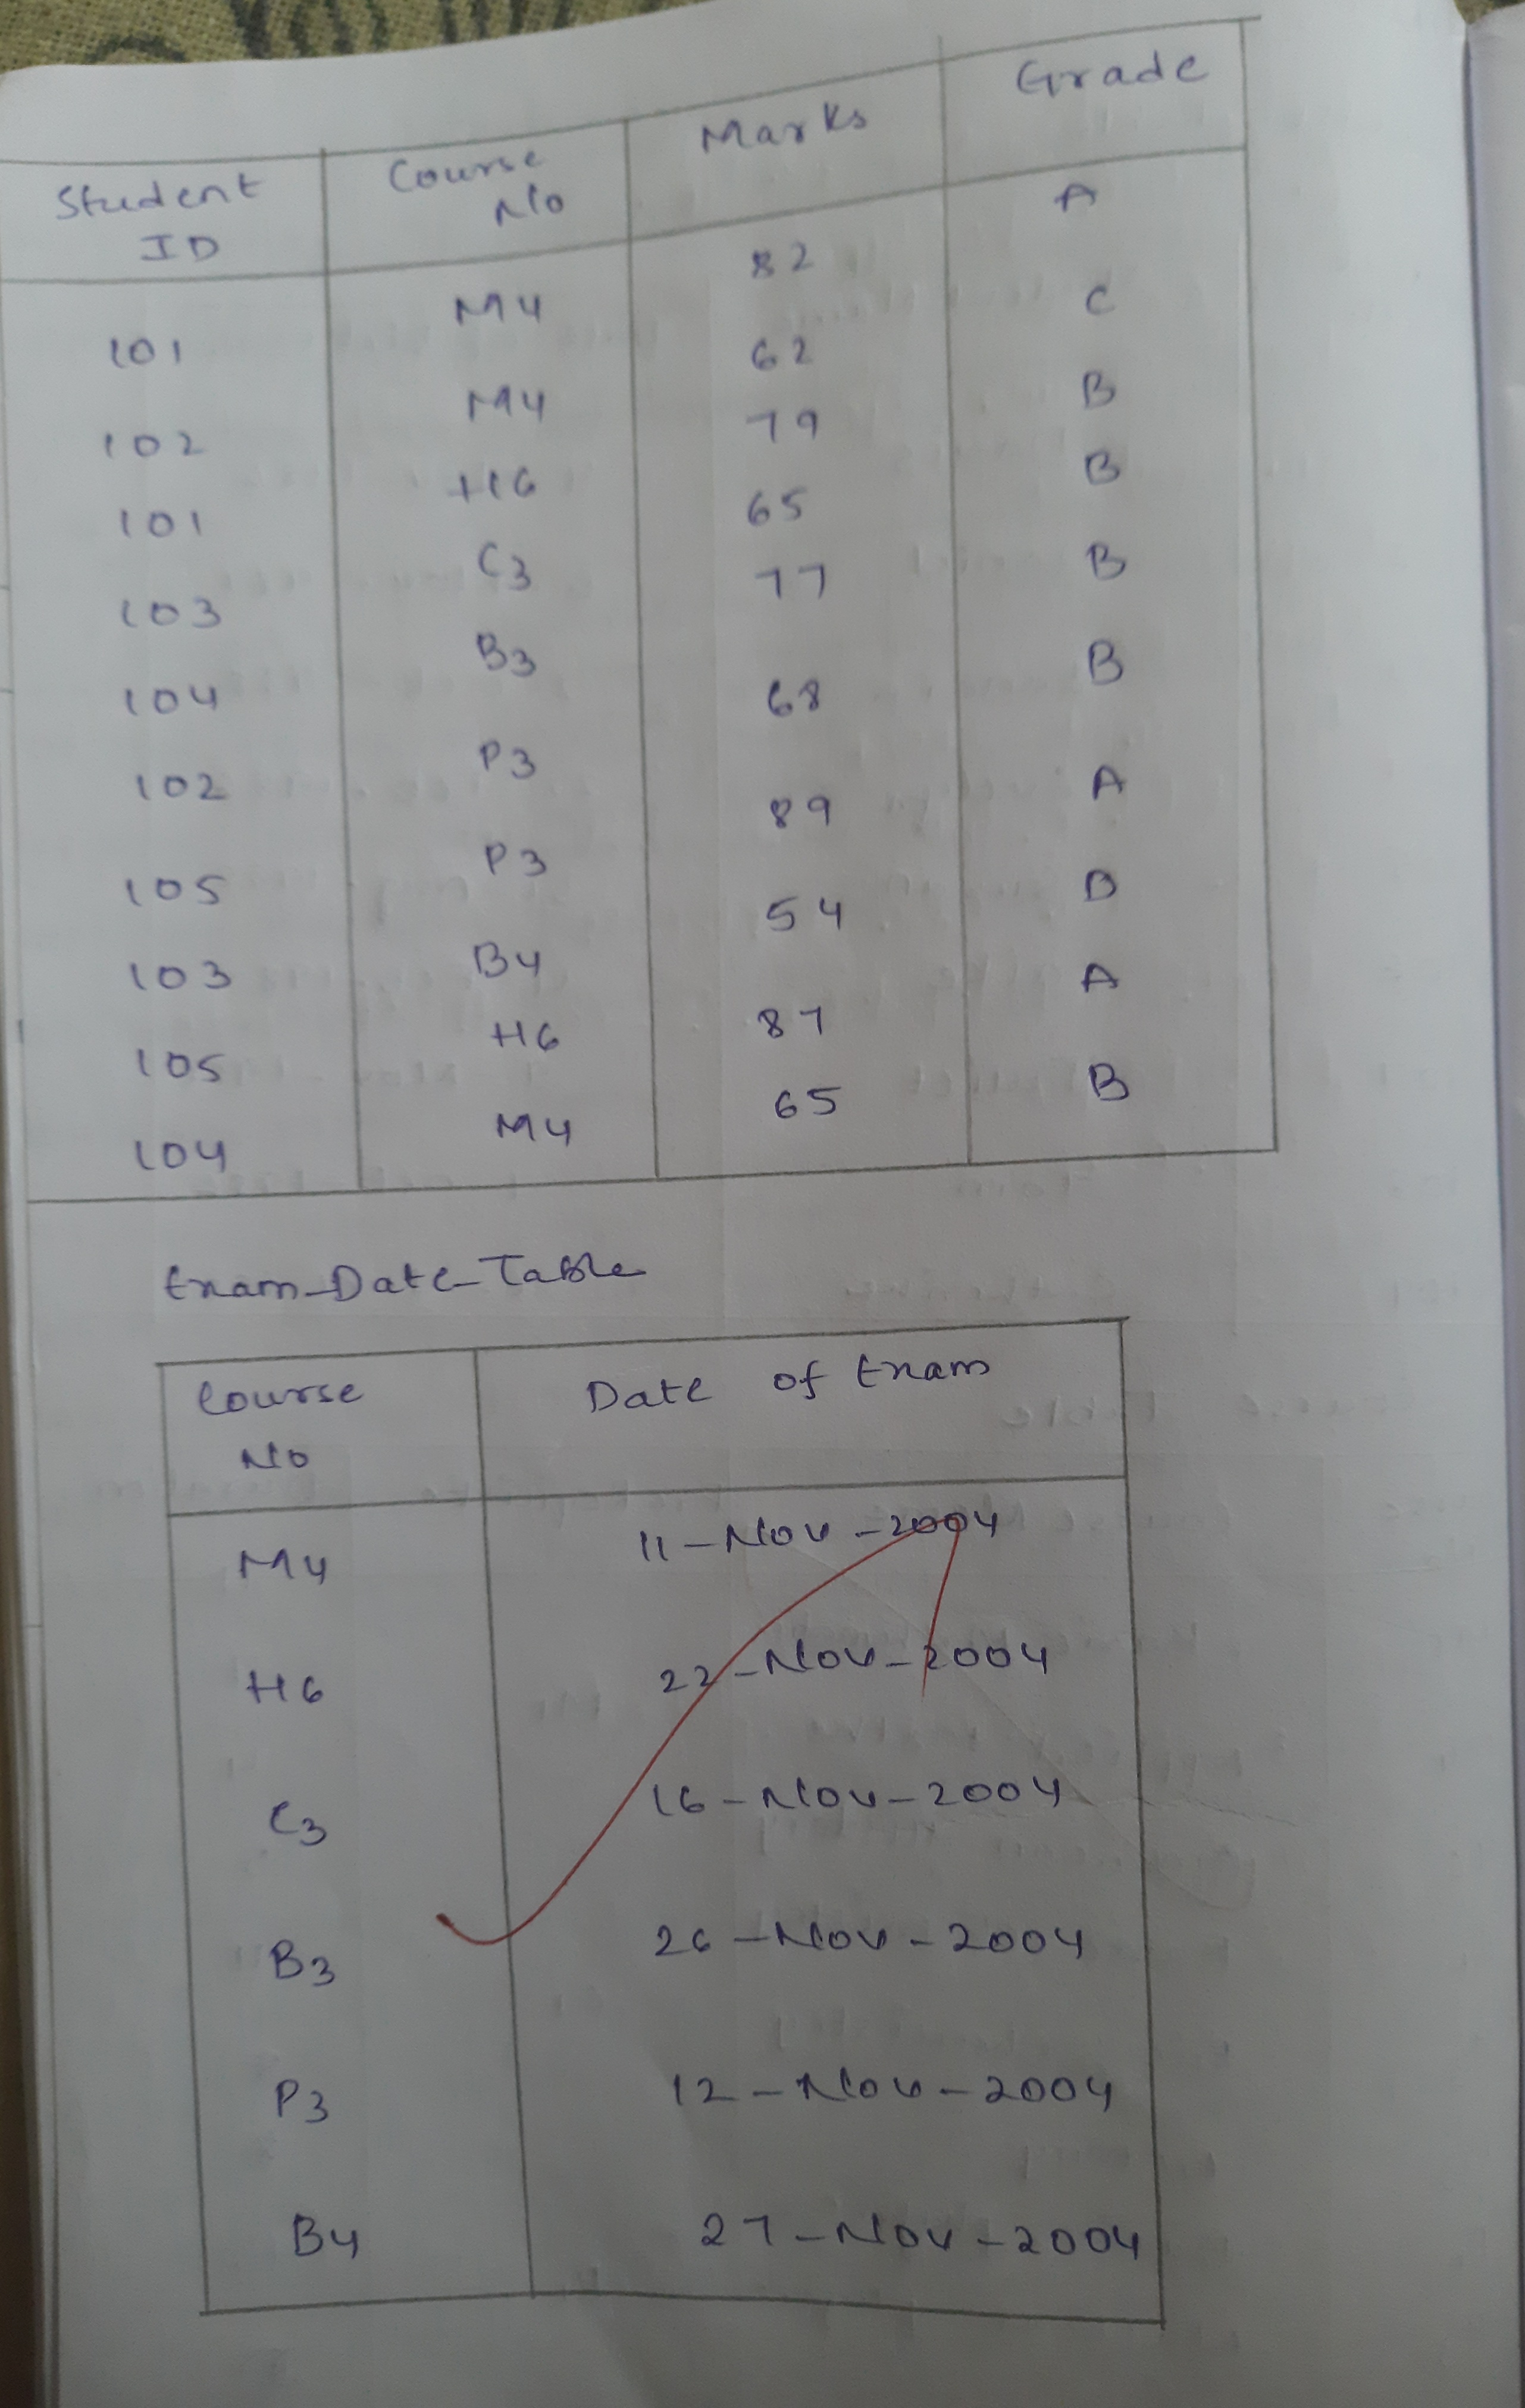 Student ID Course No Marks Grade
101 M4 82 A
102 M4 62 C
101 H6 79 B
103 C3 65 B
104 B3 77 B
102 P3 68 B
105 P3 89 A
103 B4 54 D
105 H6 87 A
104 M4 65 B
Exam_Date_Table
Course No Date of Exam
M4 11-Nov-2004
H6 22-Nov-2004
C3 16-Nov-2004
B3 26-Nov-2004
P3 12-Nov-2004
B4 27-Nov-2004